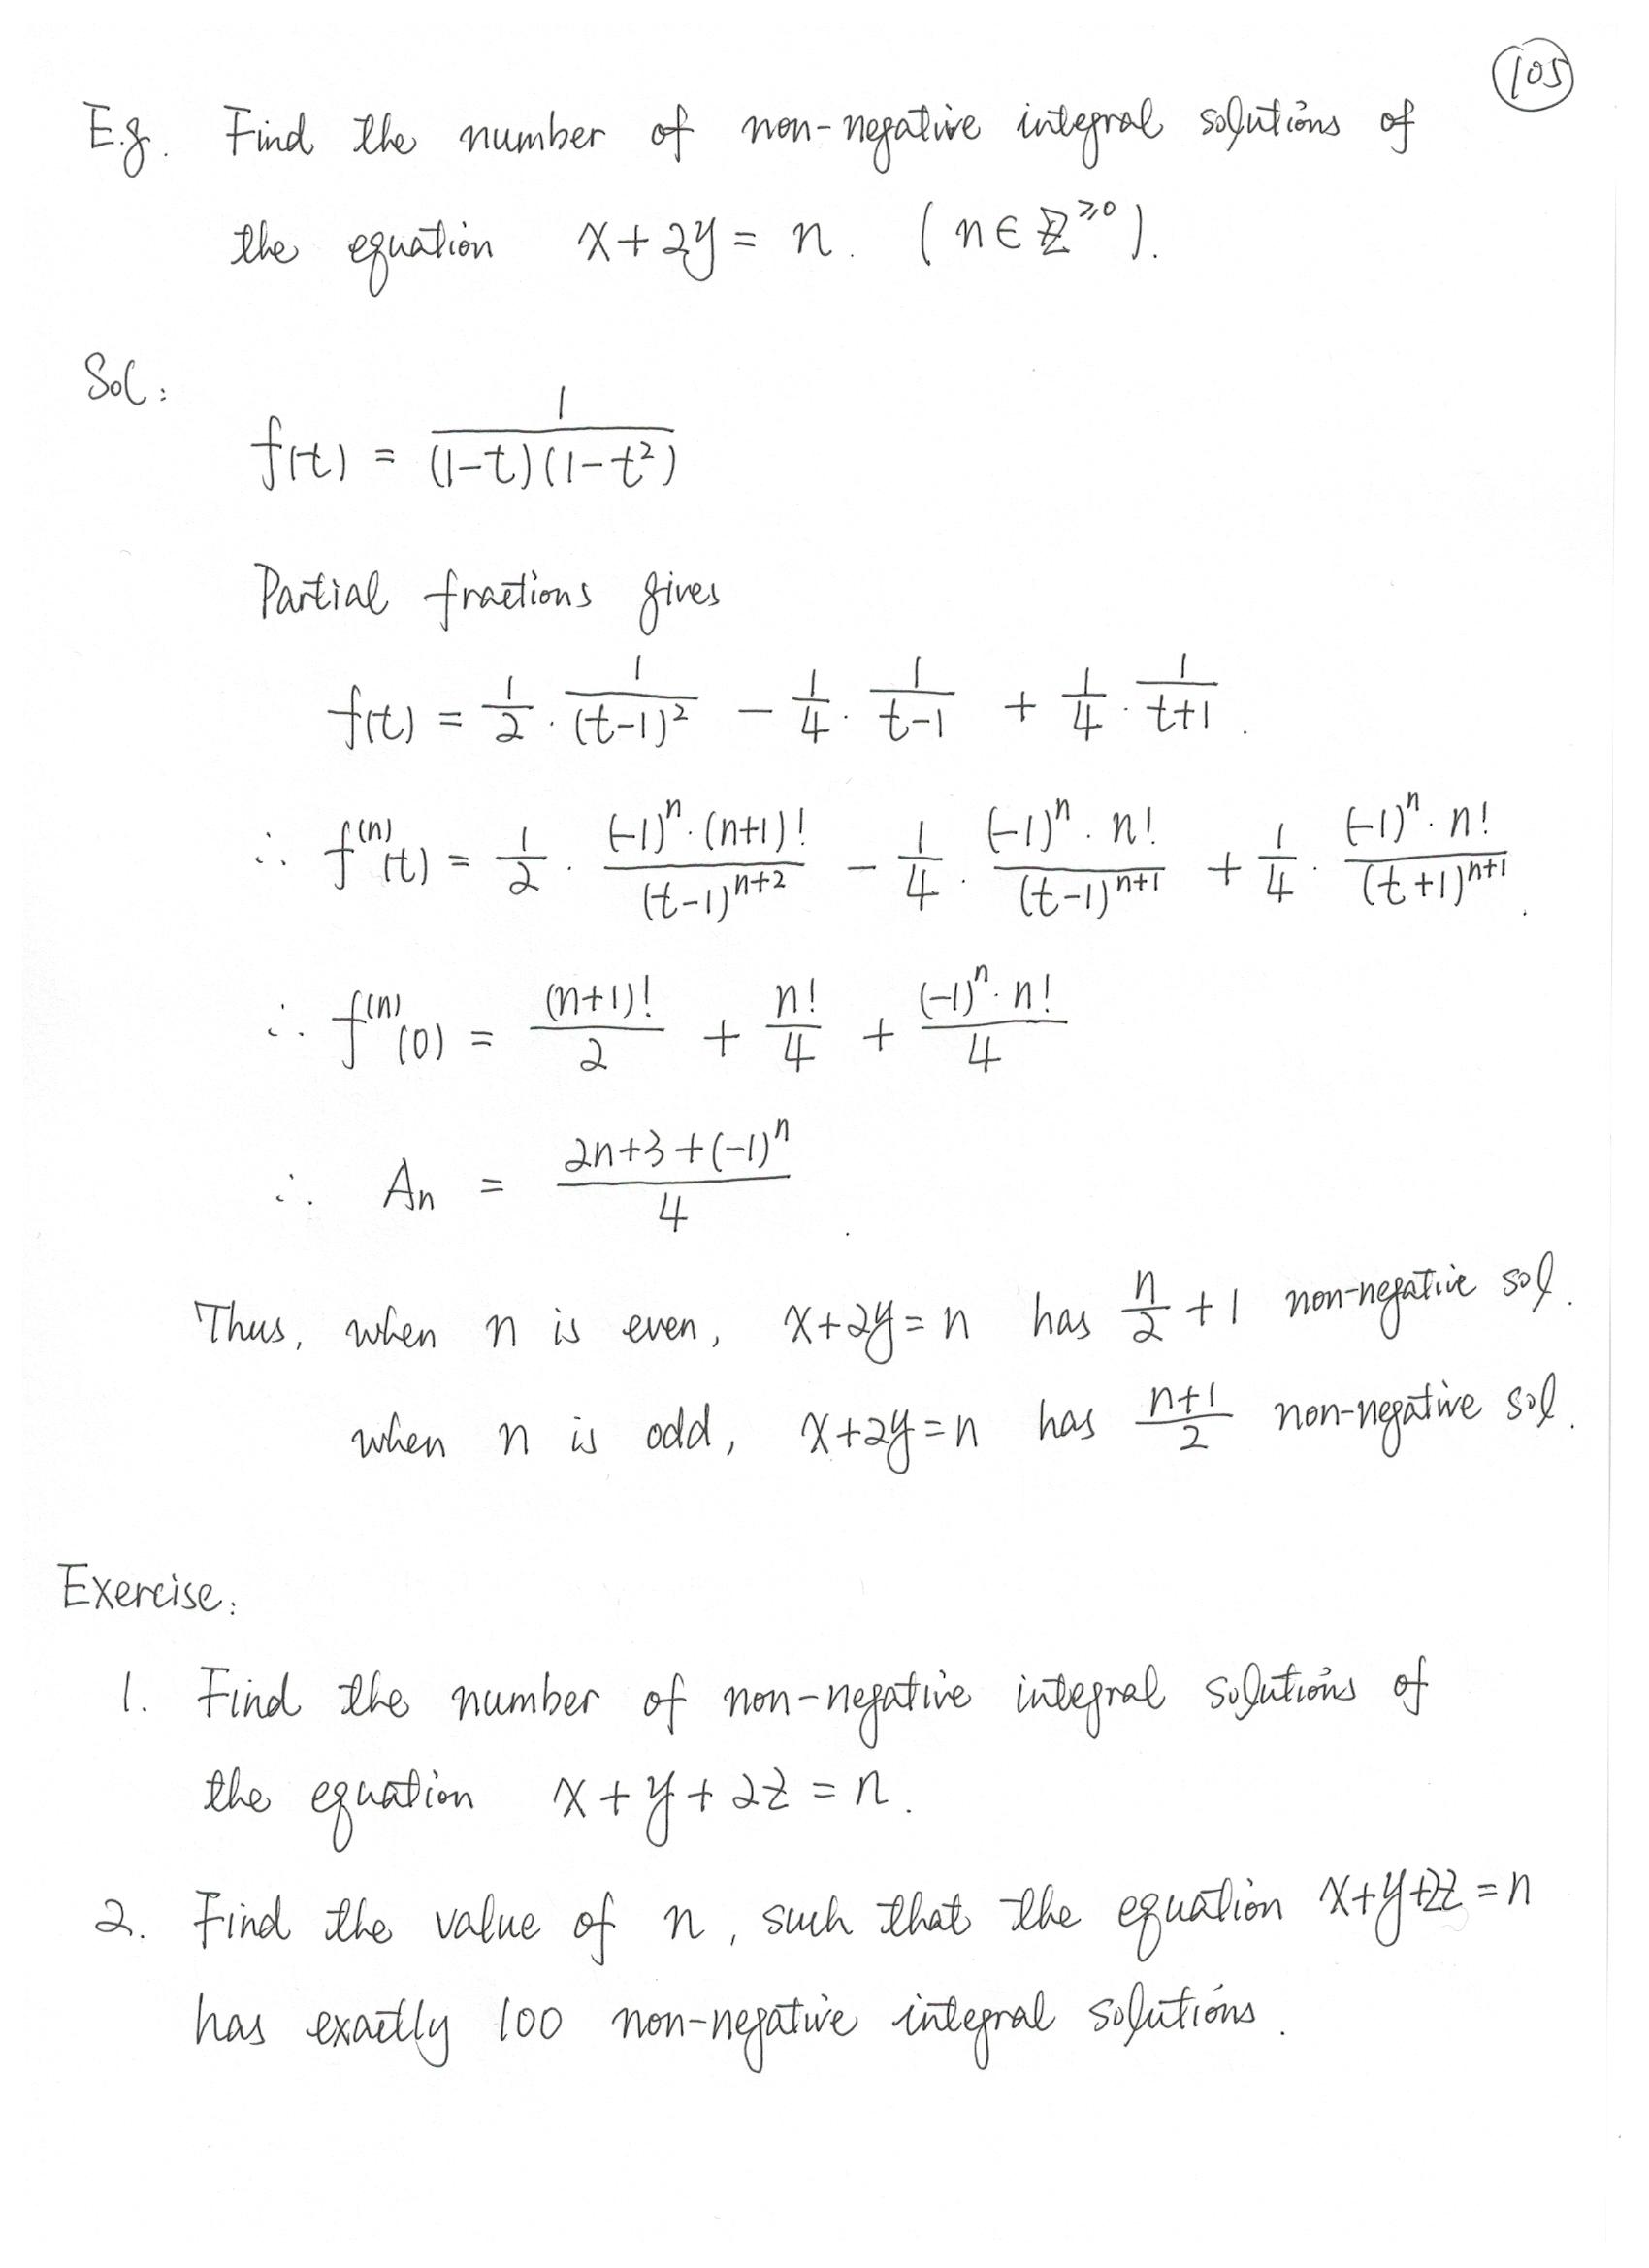 105
E.g. Find the number of non-negative integral solutions of
the equation x+2y = n. (n∈ℤ^{≥0}).
Sol:
f(t) = \frac{1}{(1-t)(1-t^2)}
Partial fractions gives
f(t) = \frac{1}{2} · \frac{1}{(t-1)^2} - \frac{1}{4} · \frac{1}{t-1} + \frac{1}{4} · \frac{1}{t+1}.
∴ f^{(n)}(t) = \frac{1}{2} · \frac{(-1)^n · (n+1)!}{(t-1)^{n+2}} - \frac{1}{4} · \frac{(-1)^n · n!}{(t-1)^{n+1}} + \frac{1}{4} · \frac{(-1)^n · n!}{(t+1)^{n+1}}.
∴ f^{(n)}(0) = \frac{(n+1)!}{2} + \frac{n!}{4} + \frac{(-1)^n · n!}{4}
∴ A_n = \frac{2n+3+(-1)^n}{4}.
Thus, when n is even, x+2y=n has \frac{n}{2}+1 non-negative sol.
when n is odd, x+2y=n has \frac{n+1}{2} non-negative sol.
Exercise:
1. Find the number of non-negative integral solutions of
the equation x+y+2z = n.
2. Find the value of n, such that the equation x+y+2z=n
has exactly 100 non-negative integral solutions.